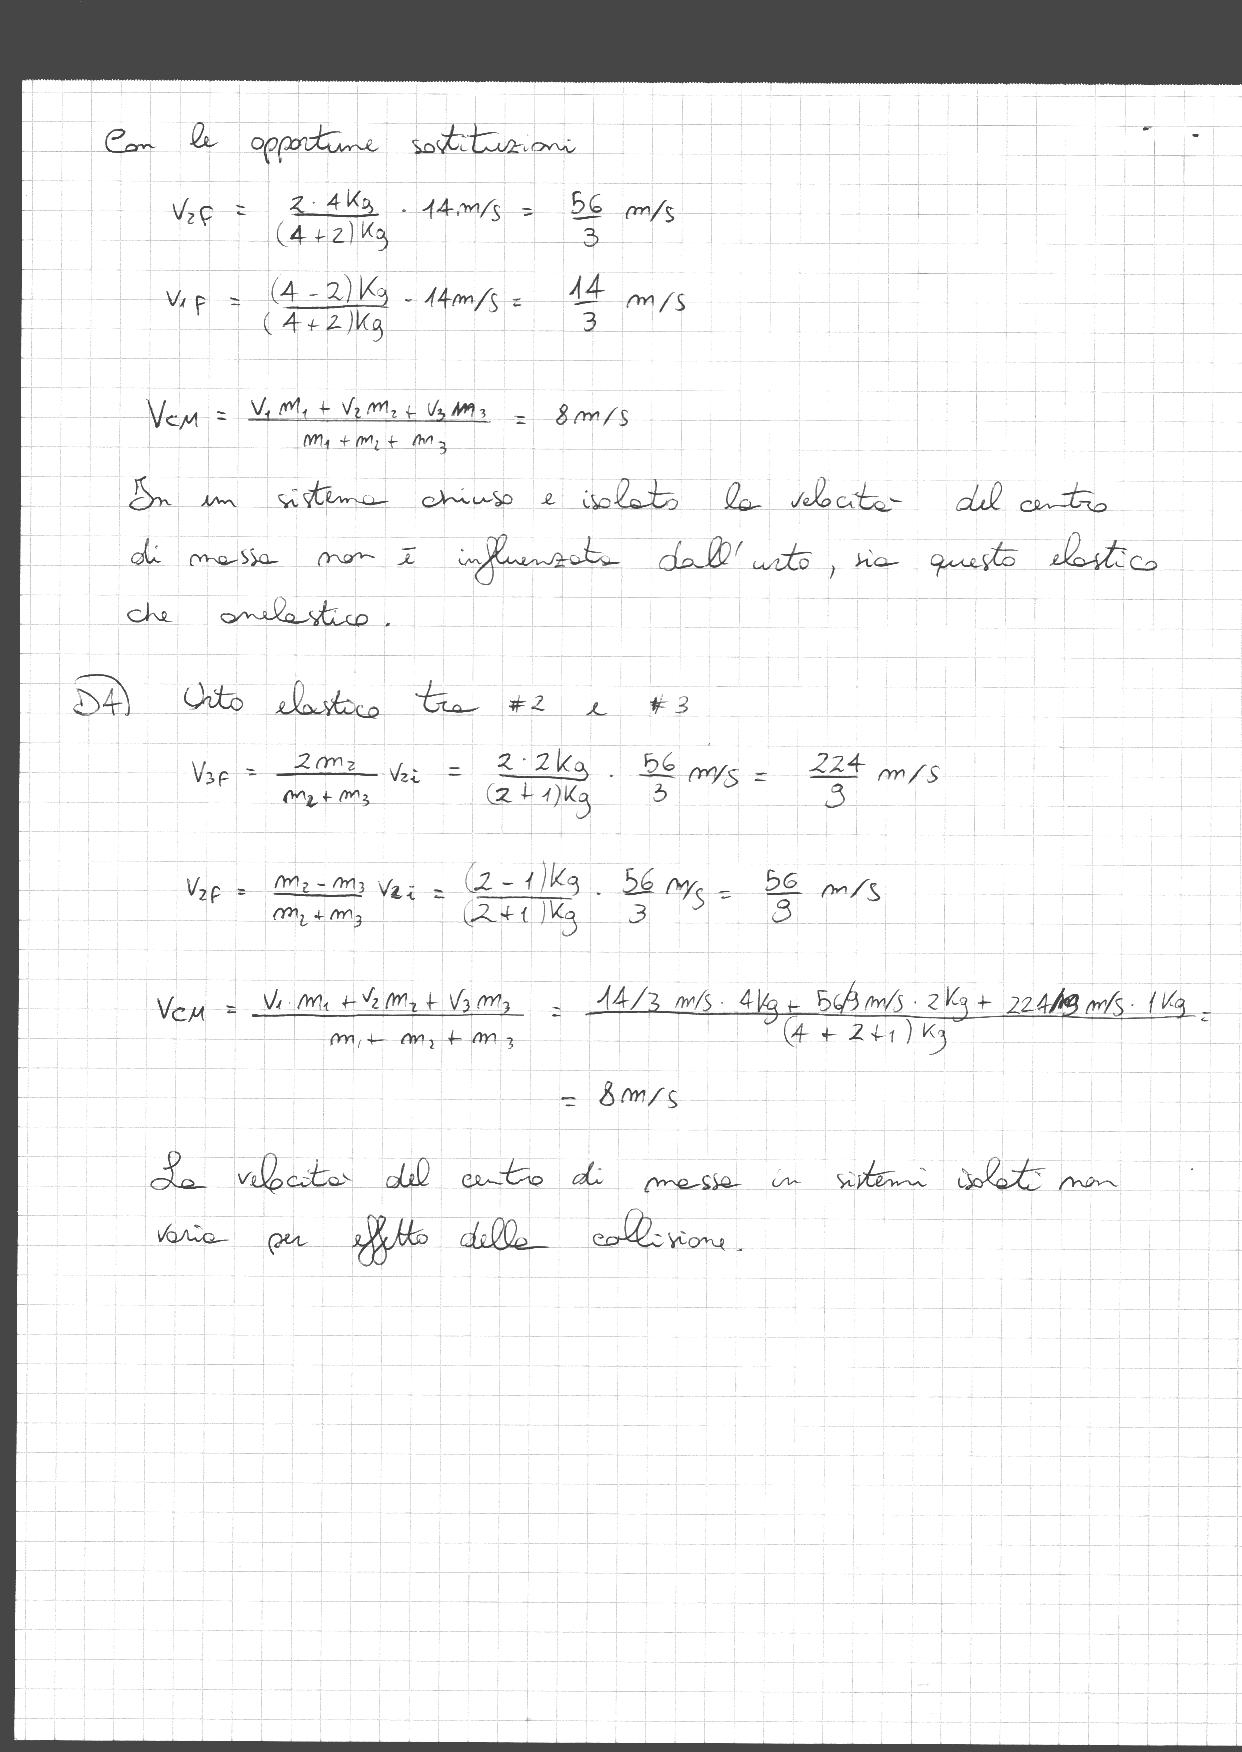 Con le opportune sostituzioni
V2F = 2·4Kg / (4+2)Kg · 14 m/s = 56/3 m/s
V1F = (4-2)Kg / (4+2)Kg · 14m/s = 14/3 m/s
VCM = (V1m1 + V2m2 + V3m3) / (m1+m2+m3) = 8m/s
In un sistema chiuso e isolato la velocità del centro
di massa non è influenzata dall'urto, sia questo elastico
che anelastico.
D4) Urto elastico tra #2 e #3
V3F = 2m2 / (m2+m3) V2i = 2·2Kg / (2+1)Kg · 56/3 m/s = 224/9 m/s
V2F = (m2-m3) / (m2+m3) V2i = (2-1)Kg / (2+1)Kg · 56/3 m/s = 56/9 m/s
VCM = (V1·m1+V2m2+V3m3) / (m1+m2+m3) = (14/3 m/s·4Kg + 56/9 m/s·2Kg + 224/9 m/s·1Kg) / (4+2+1)Kg =
= 8m/s
La velocità del centro di massa in sistemi isolati non
varia per effetto della collisione.